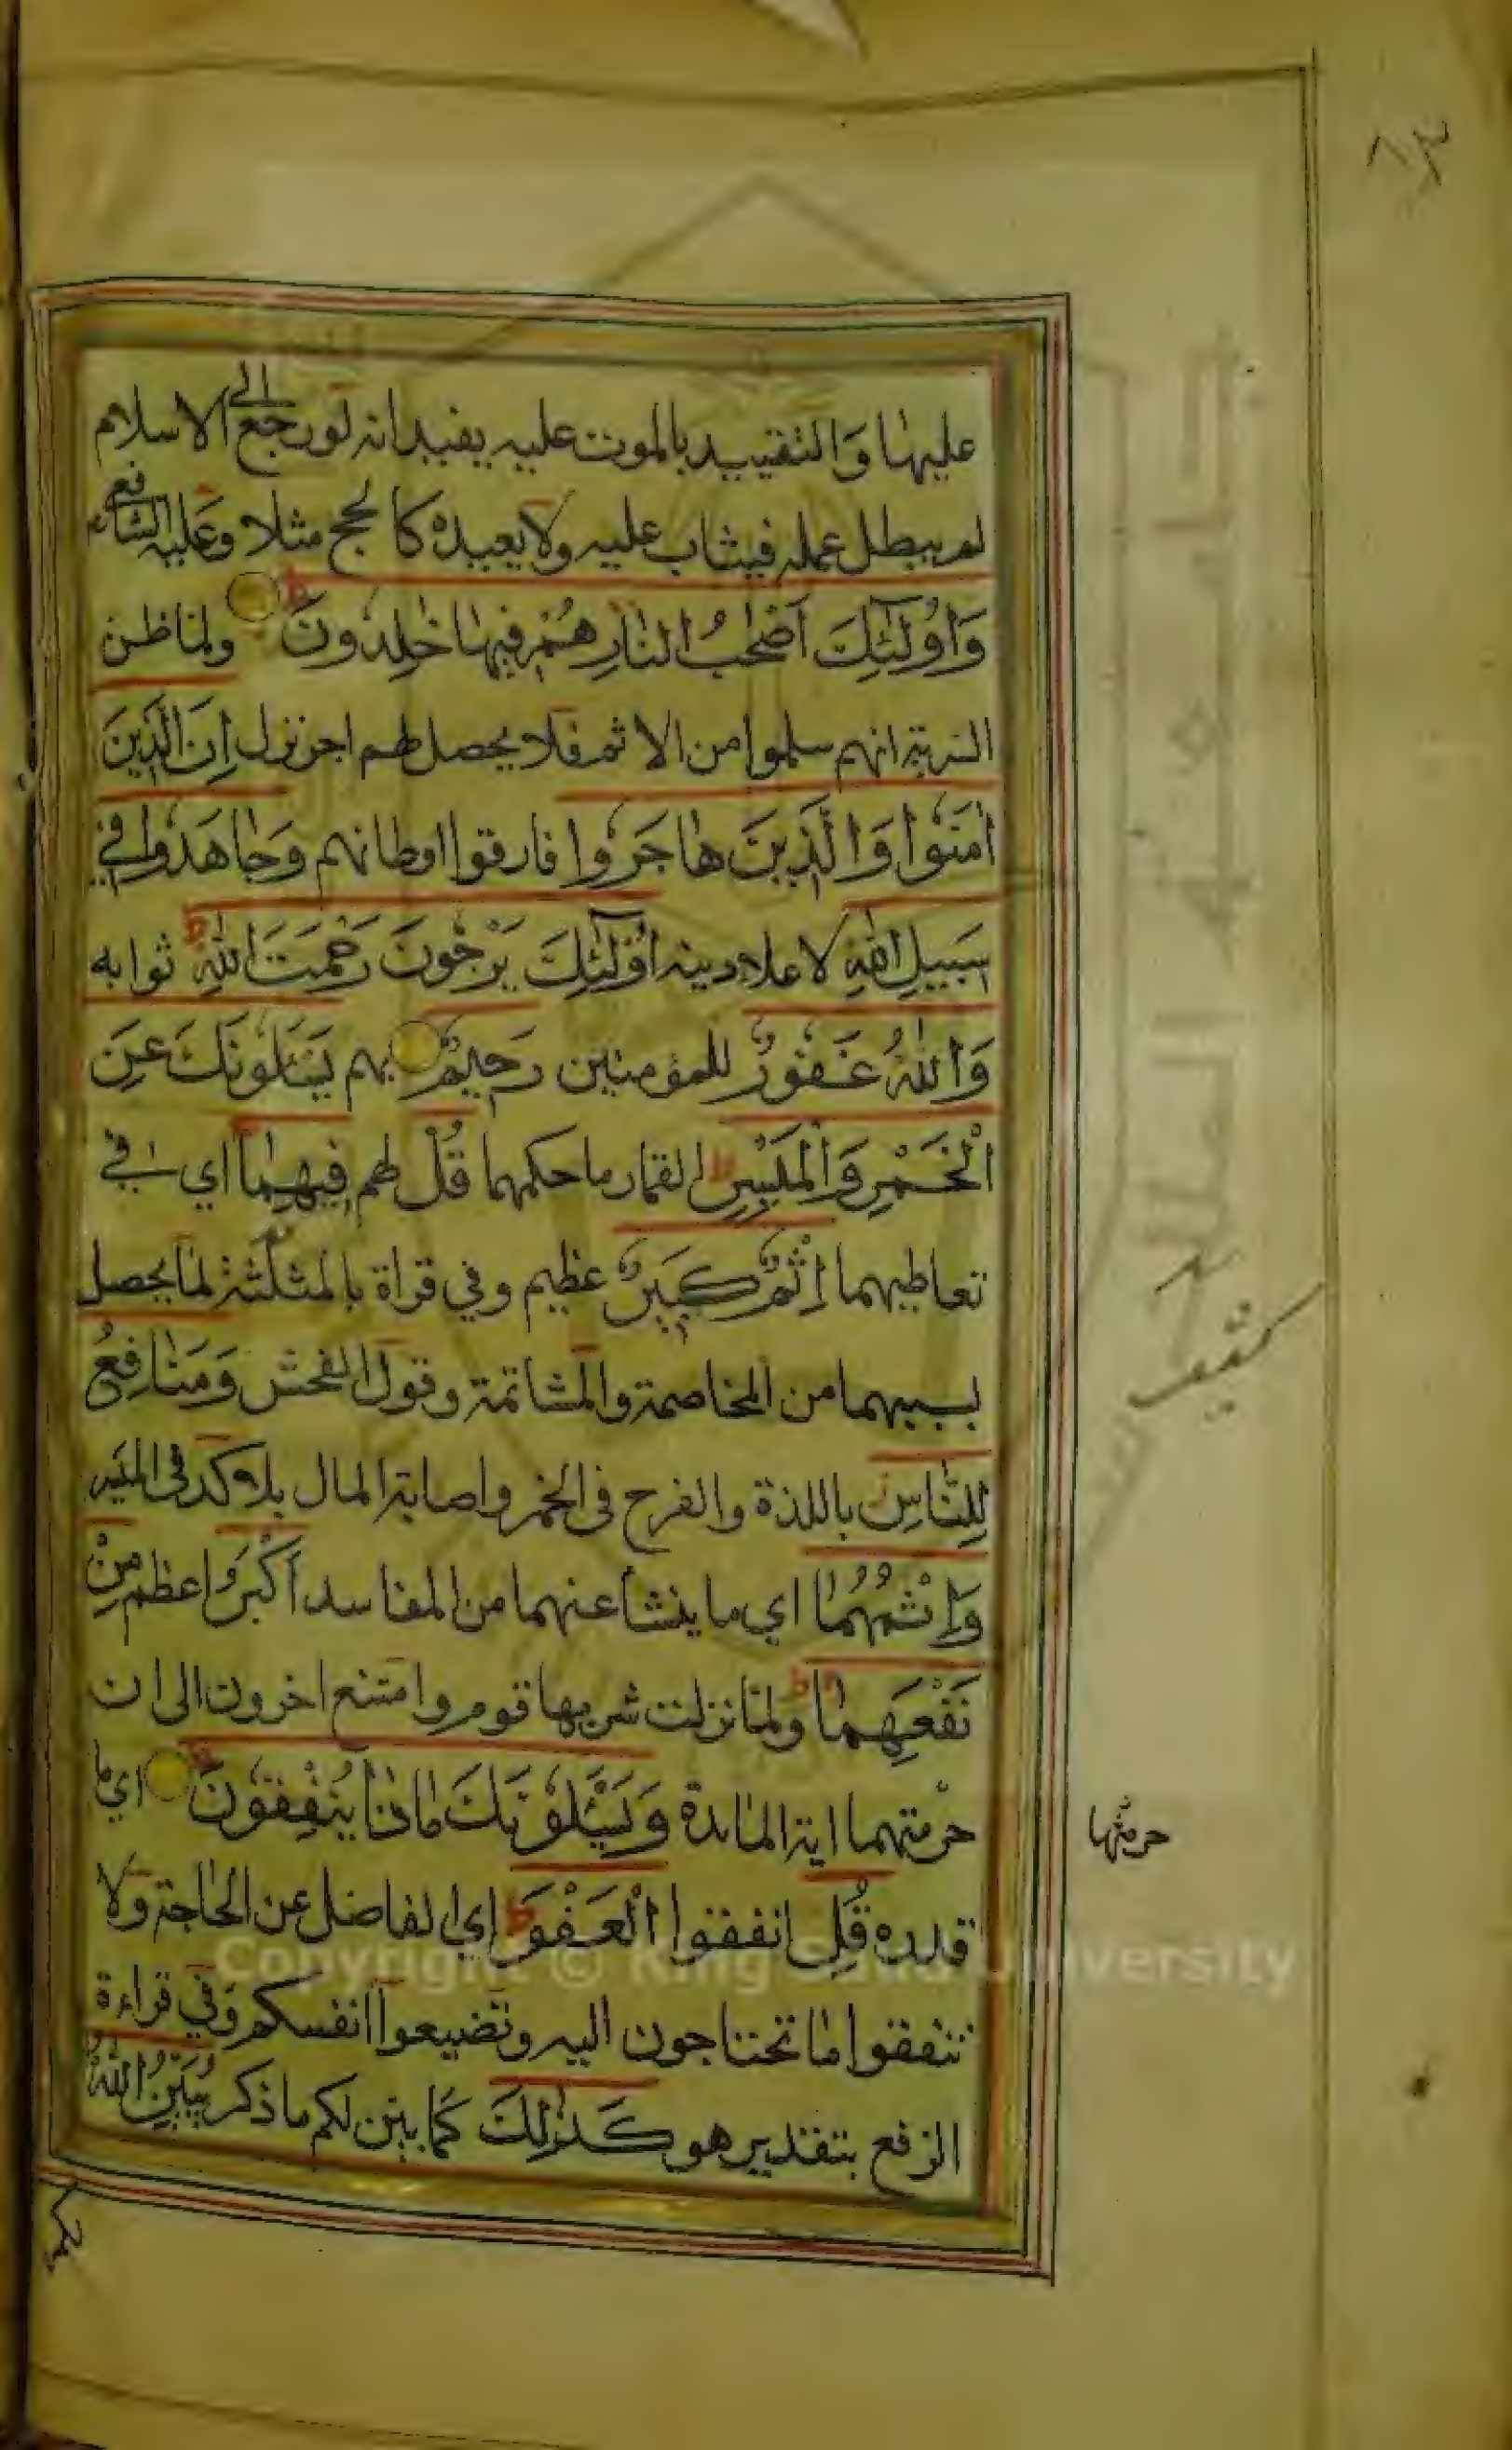 عليها والتقييد بالموت عليه يفيد انه لو رجع الى الاسلام
لم يبطل عمله فيثاب عليه ولا يعيده كالحج مثلا وعليه الشافعي
وَاُولٰٓئِكَ اَصْحٰبُ النَّارِ هُمْ فِيهَا خٰلِدُونَ ولما ظن
السرية انهم سلموا من الاثم فلا يحصل لهم اجر نزل اِنَّ الَّذِينَ
اٰمَنُوا وَالَّذِينَ هَاجَرُوا فارقوا اوطانهم وَجَاهَدُوا فِي
سَبِيلِ اللّٰهِ لاعلاء دينه اُولٰٓئِكَ يَرْجُونَ رَحْمَتَ اللّٰهِ ط ثوابه
وَاللّٰهُ غَفُورٌ للمؤمنين رَحِيمٌ بهم يَسْئَلُونَكَ عَنِ
الْخَمْرِ وَالْمَيْسِرِ ط القمار ما حكمهما قُلْ لهم فِيهِمَا اي في
تعاطيهما اِثْمٌ كَبِيرٌ عظيم وفي قراة بالمثلثة لما يحصل
بسببهما من المخاصمة والمشاتمة وقول الفحش وَمَنَافِعُ
لِلنَّاسِ باللذة والفرح في الخمر واصابة المال بلا كد في الميسر
وَاِثْمُهُمَا اي ما ينشأ عنهما من المفاسد اَكْبَرُ اعظم مِنْ
نَفْعِهِمَا ط ولما نزلت شربها قوم وامتنع اخرون الى ان
حرمتهما اية المائدة وَيَسْئَلُونَكَ مَاذَا يُنْفِقُونَ ط اي ما
قدره قُلِ انفقوا الْعَفْوَ ط اي الفاضل عن الحاجة ولا
تنفقوا ما تحتاجون اليه وتضيعوا انفسكم وفي قراءة
الرفع بتقدير هو كَذٰلِكَ كما بين لكم ما ذكر يُبَيِّنُ اللّٰهُ
لكم
حرمتها
٦٣
Copyright © King Saud University